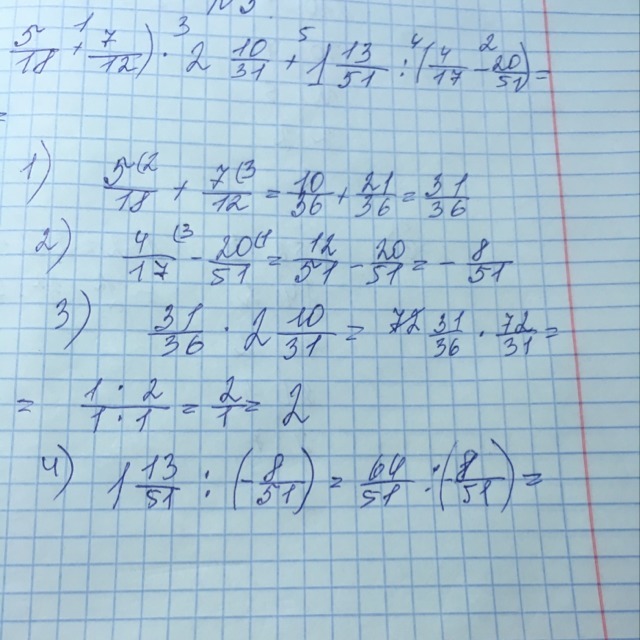 5/18 + 7/12) · 2 10/31 + 1 13/51 : (4/17 - 20/51) =
=
1) 5(2/18 + 7(3/12 = 10/36 + 21/36 = 31/36
2) 4(3/17 - 20(1/51 = 12/51 - 20/51 = - 8/51
3) 31/36 · 2 10/31 = 31/36 · 72/31 =
= 1 · 2/1 · 1 = 2/1 = 2
4) 1 13/51 : (- 8/51) = 64/51 : (8/51) =